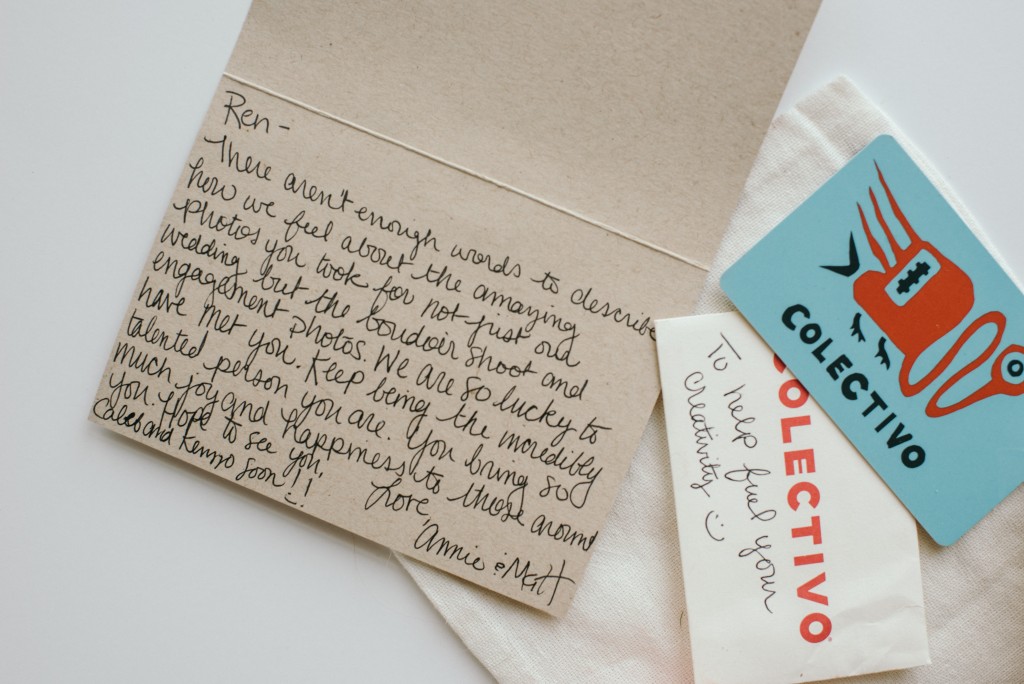 Ren -
There aren't enough words to describe
how we feel about the amazing
photos you took for not just our
wedding but the boudoir shoot and
engagement photos. We are so lucky to
have met you. Keep being the incredibly
talented person you are. You bring so
much joy and happiness to those around
you. Hope to see you,
Caleb and Kenzo soon!!
Love,
Annie & Matt
COLECTIVO
To help fuel your
creativity :)
COLECTIVO